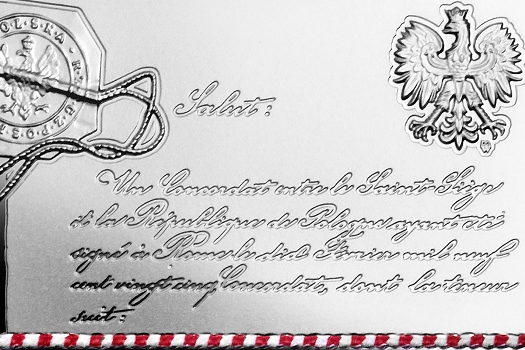 POLSKA
Salut:
Un Concordat entre le Saint-Siège
et la République de Pologne ayant été
signé à Rome le dix Février mil neuf
cent vingt cinq Concordat, dont la teneur
suit: